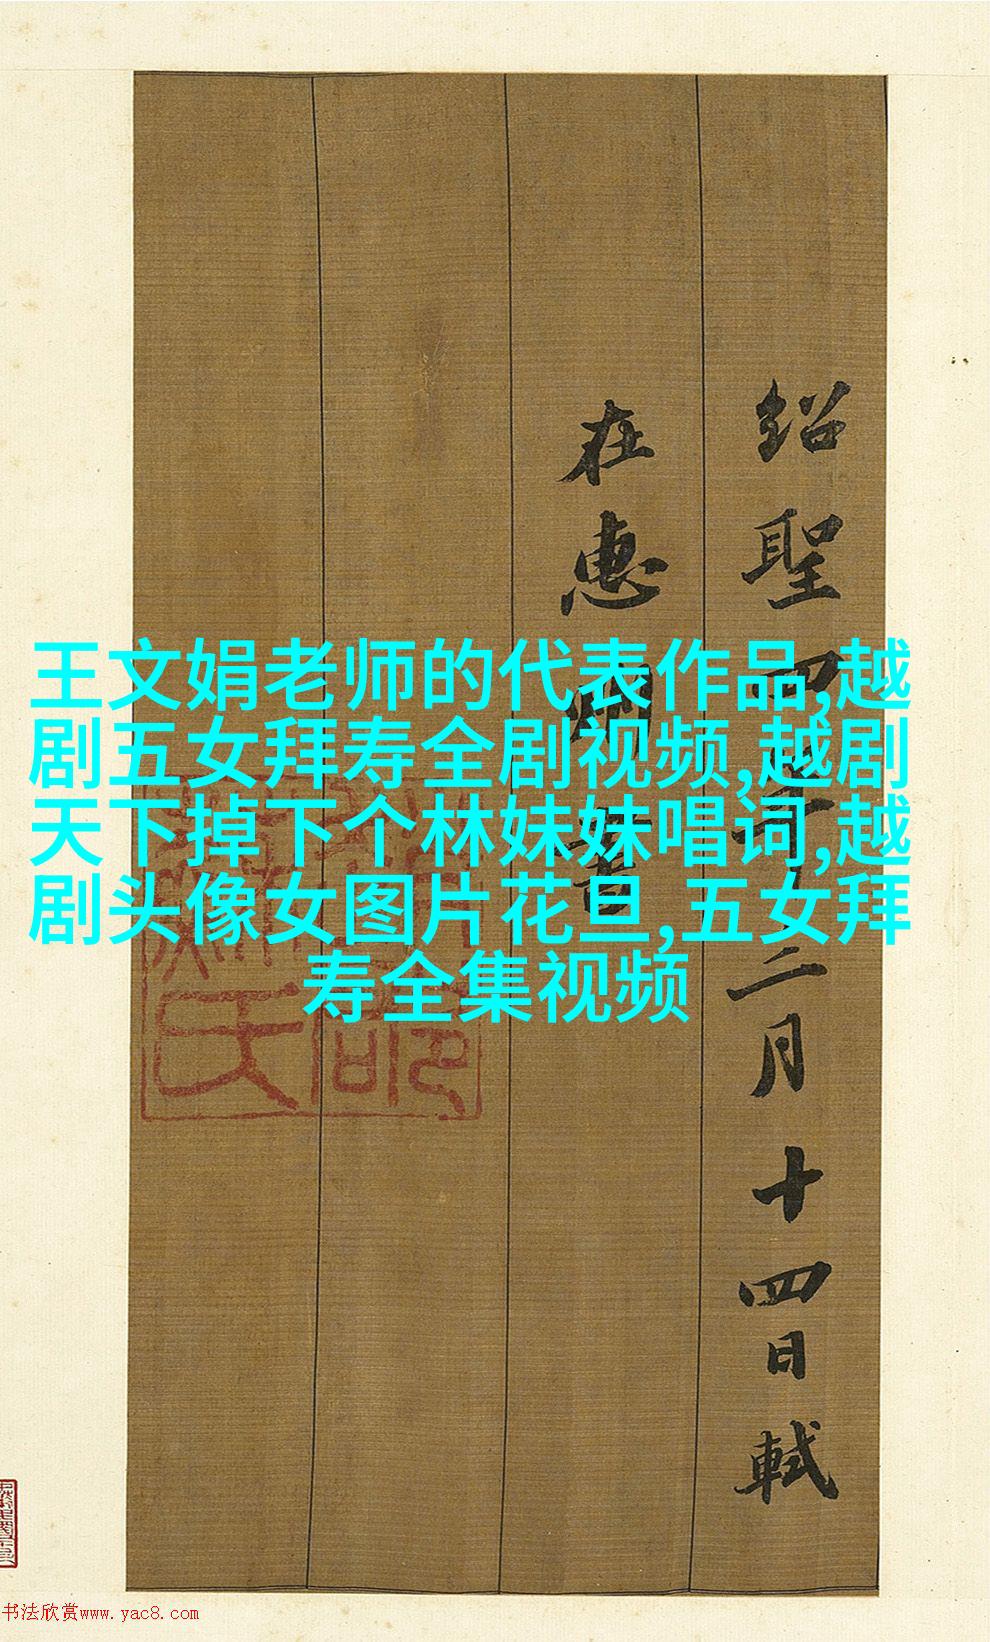 绍聖四年十二月十四日軾
在惠州書
王文娟老师的代表作品,越
剧五女拜寿全剧视频,越剧
天下掉下个林妹妹唱词,越
剧头像女图片花旦,五女拜
寿全集视频
书法欣赏www.yac8.com